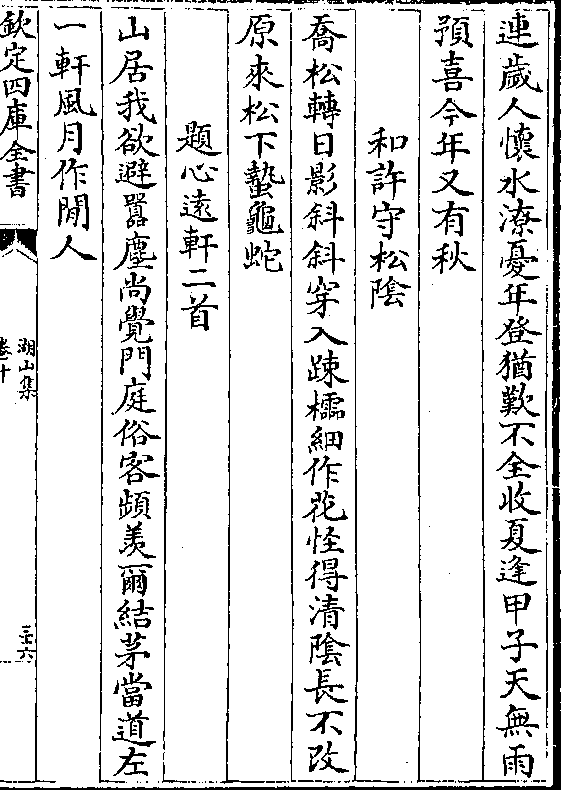 連歲人懷水潦憂年登猶歎不全收夏逢甲子天無雨
預喜今年又有秋
和許守松陰
喬松轉日影斜斜穿入疎櫺細作花怪得清陰長不改
原來松下蟄龜蛇
題心遠軒二首
山居我欲避囂塵尚覺門庭俗客頻羨爾結茅當道左
一軒風月作閒人
欽定四庫全書
湖山集
卷十
三十六